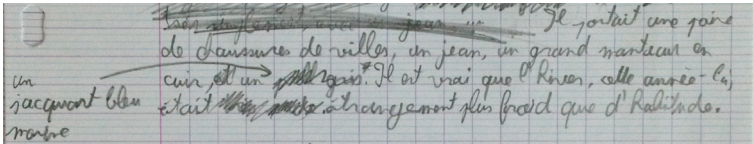 Il portait une paire
de chaussures de villes, un jean, un grand manteau en
cuir, et un pull gris*. Il est vrai que l'hiver, cette année-là,
était étrangement plus froid que d'habitude.
un
jacquart bleu
marine